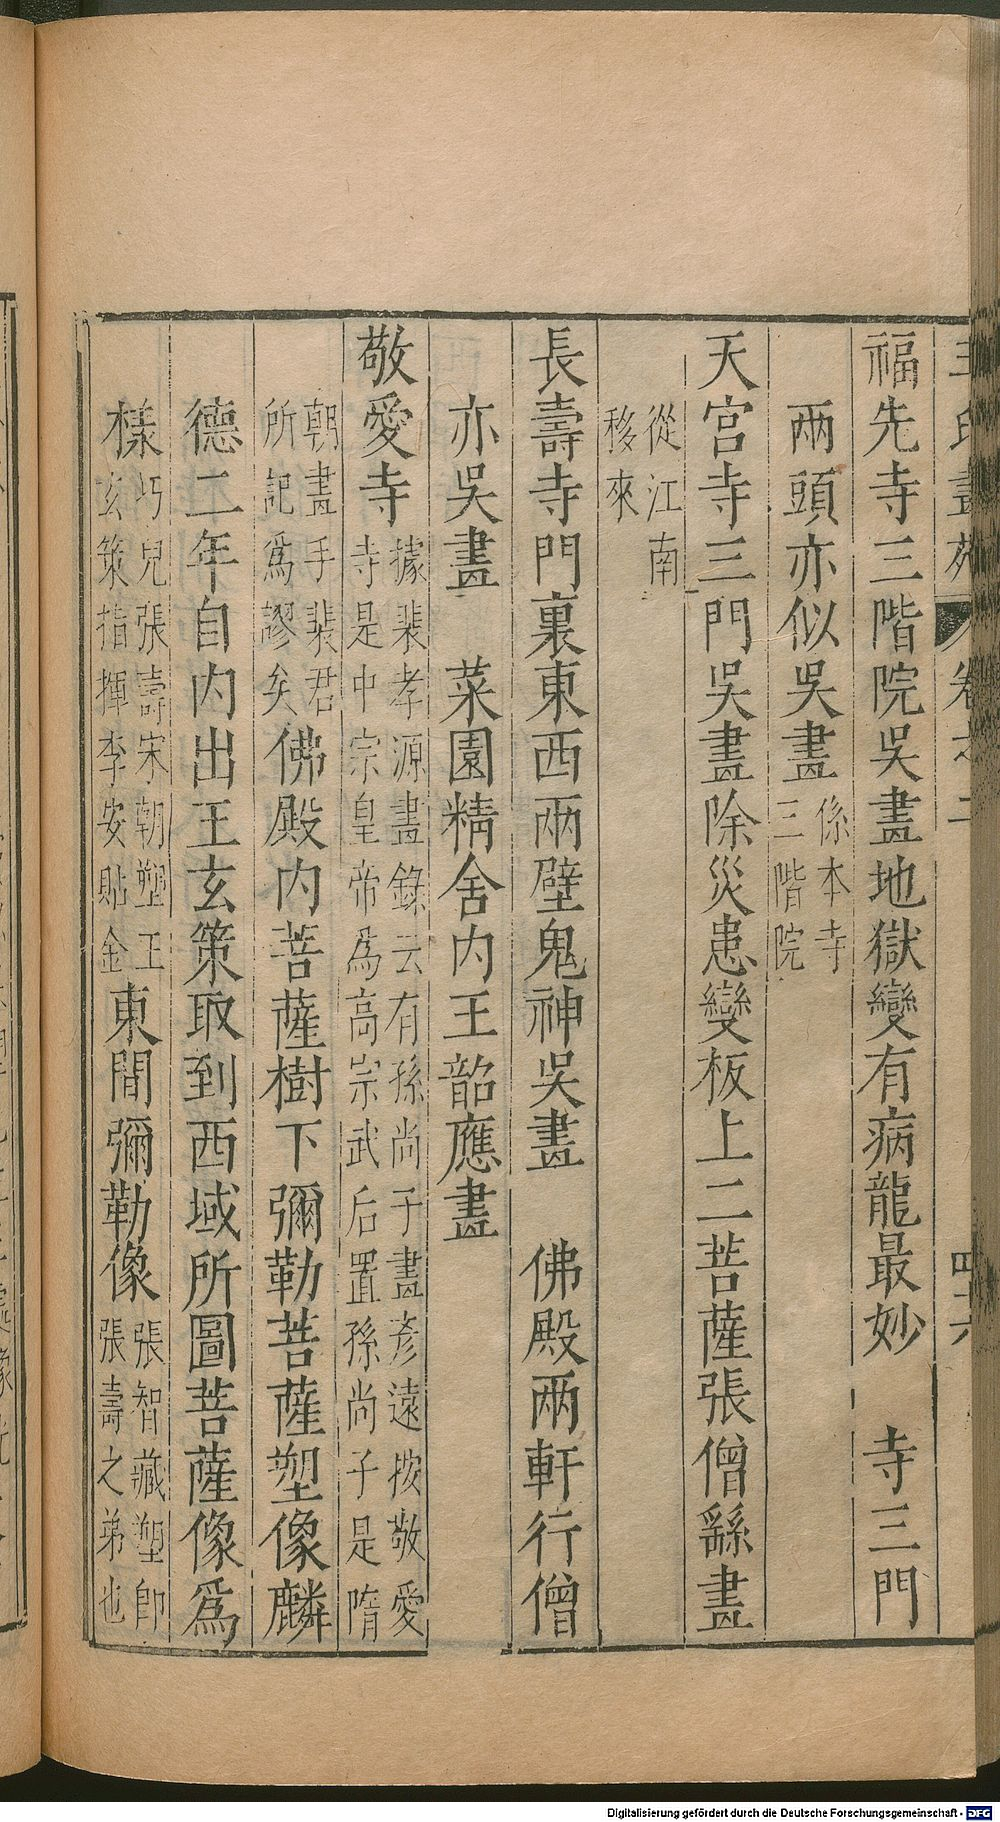 福先寺三階院吳畫地獄變有病龍最妙　寺三門
兩頭亦似吳畫係本寺三階院
天宮寺三門吳畫除災患變板上二菩薩張僧繇畫
從江南移來
長壽寺門裏東西兩壁鬼神吳畫　佛殿兩軒行僧
亦吳畫　菜園精舍内王韶應畫
敬愛寺據裴孝源畫錄云有孫尚子畫彥遠按敬愛寺是中宗皇帝為高宗武后置孫尚子是隋
朝畫手裴君所記爲謬矣佛殿内菩薩樹下彌勒菩薩塑像麟
德二年自内出王玄策取到西域所圖菩薩像爲
樣巧兒張壽宋朝塑王玄策指揮李安貼金東間彌勒像張智藏塑卽張壽之弟也
Digitalisierung gefördert durch die Deutsche Forschungsgemeinschaft - DFG